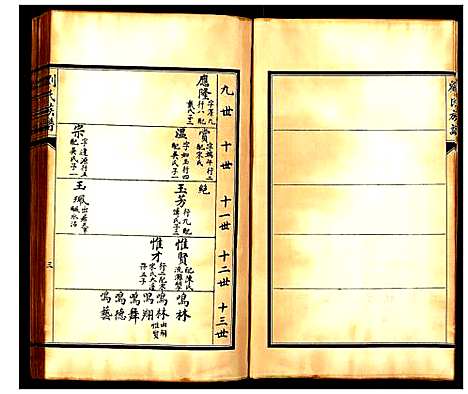 九世 十世 十一世 十二世 十三世
應隆
字厚九
行八配
戴氏子二
賞
字端年行三
配宋氏
絶
溫
字如玉行四
配吳氏子一
玉芳
行九配
傅氏子二
惟賢
配陳氏
鳴林
惟才
行二配宋
氏
鳴林
出嗣
惟賢
鳴翔
鳴舞
鳴德
鳴藝
宗
字達源行五
配吳氏子一
玉珮
劉氏族譜
三
劉氏族譜